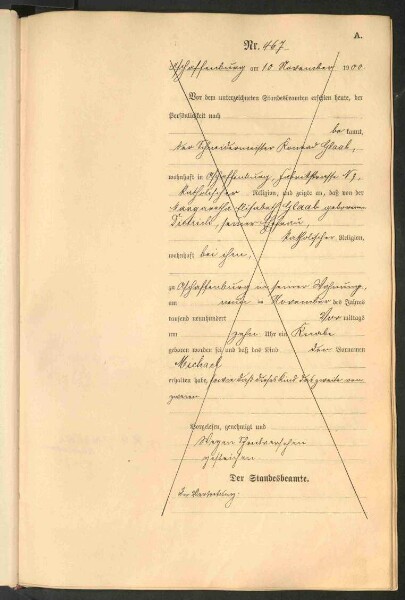 A.
Nr. 467
Aschaffenburg am 10 November 1900.
Vor dem unterzeichneten Standesbeamten erschien heute, der
Persönlichkeit nach
be kannt,
der Schneidermeister Konrad Glaab,
wohnhaft in Aschaffenburg,
katholischer Religion, und zeigte an, daß von der
Margaretha Elisabeth Glaab geborenen
Dietrich, seiner Ehefrau,
katholischer Religion,
wohnhaft bei ihm,
zu Aschaffenburg in seiner Wohnung,
am neun November des Jahres
tausend neunhundert Vor mittags
um zehn Uhr ein Knabe
geboren worden sei und daß das Kind den Vornamen
Michael
erhalten habe, dieses Kind das zweite von
Vorgelesen, genehmigt und
Wegen
gestrichen
Der Standesbeamte.
In Vertretung: